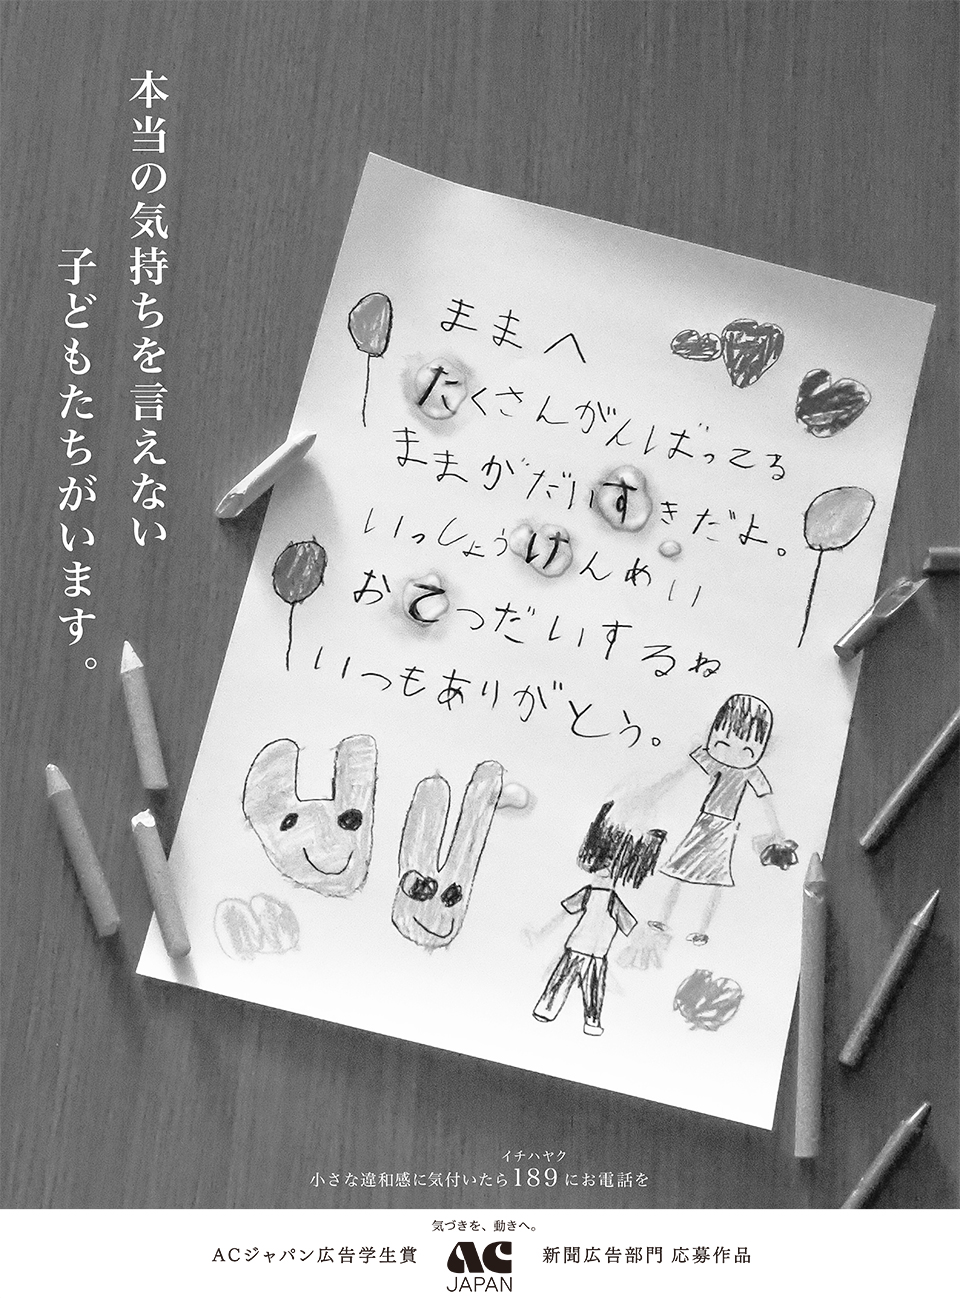 本当の気持ちを言えない
子どもたちがいます。
ままへ
たくさんがんばってる
ままがだいすきだよ。
いっしょうけんめい
おてつだいするね
いつもありがとう。
イチハヤク
小さな違和感に気付いたら189にお電話を
気づきを、動きへ。
ACジャパン広告学生賞
AC
JAPAN
新聞広告部門 応募作品